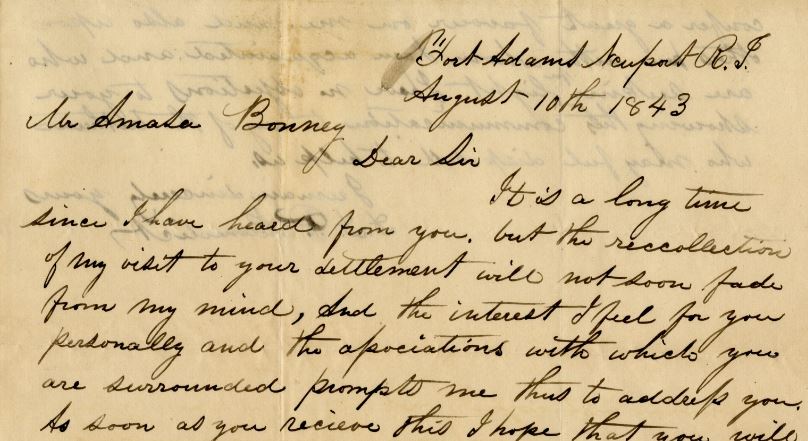 Fort Adams Newport R.I.
August 10th 1843
Mr Amasa Bonney
Dear Sir
It is a long time
since I have heard from you. but the reccollection
of my visit to your settlement will not soon fade
from my mind, And the interest I feel for you
personally and the associations with which you
are surrounded prompts me thus to address you.
As soon as you recieve this I hope that you will